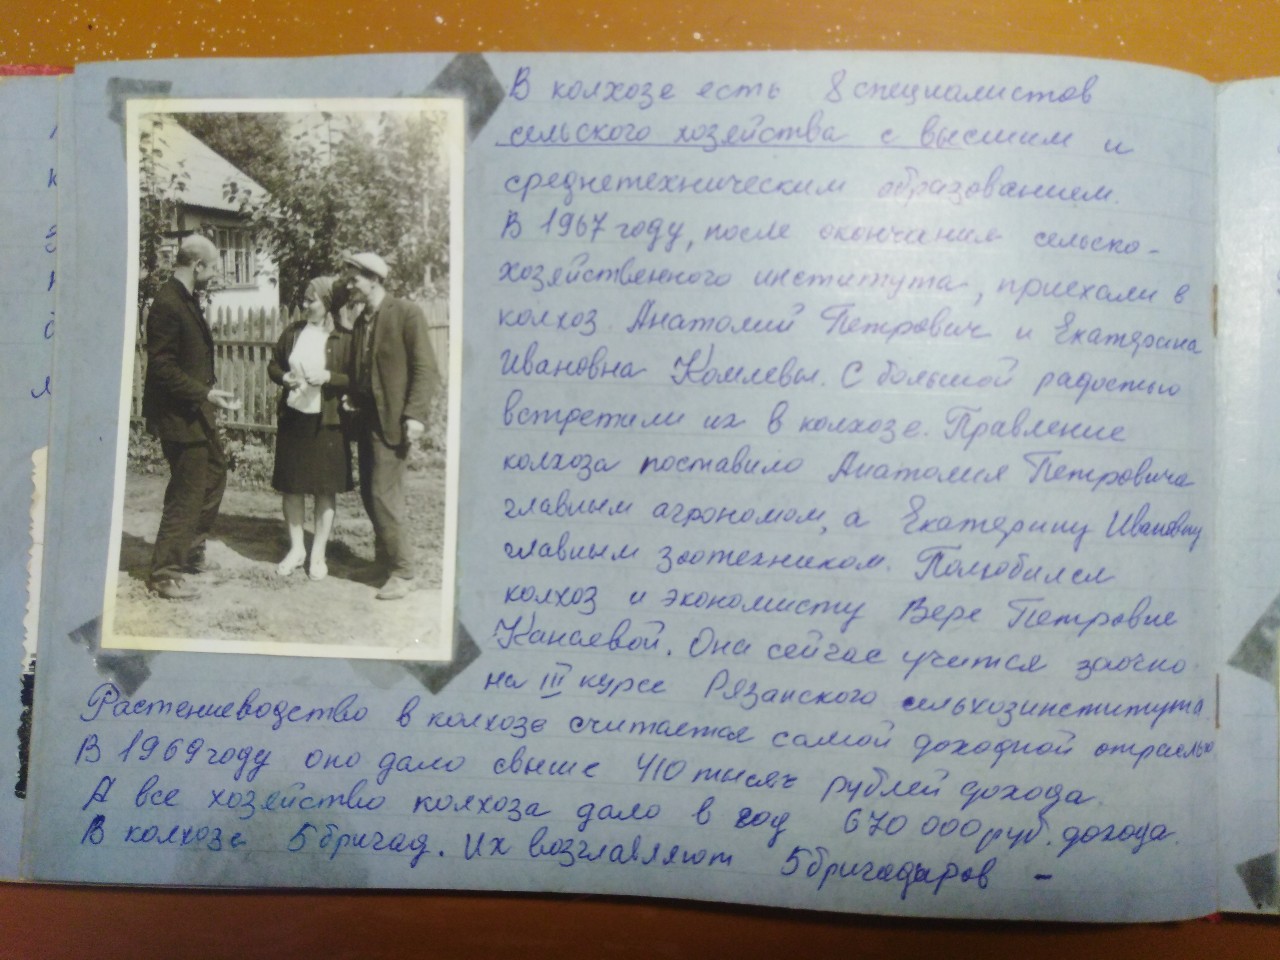 В колхозе есть 8 специалистов
сельского хозяйства с высшим и
среднетехническим образованием.
В 1967 году, после окончания сельско-
хозяйственного института, приехали в
колхоз Анатолий Петрович и Екатерина
Ивановна Комлевы. С большой радостью
встретили их в колхозе. Правление
колхоза поставило Анатолия Петровича
главным агрономом, а Екатерину Ивановну
главным зоотехником. Полюбился
колхоз и экономисту Вере Петровне
Канаевой. Она сейчас учится заочно
на III курсе Рязанского сельхозинститута.
Растениеводство в колхозе считается самой доходной отраслью
В 1969 году оно дало свыше 410 тысяч рублей дохода.
А все хозяйство колхоза дало в год 670 000 руб. дохода.
В колхозе 5 бригад. Их возглавляют 5 бригадиров -